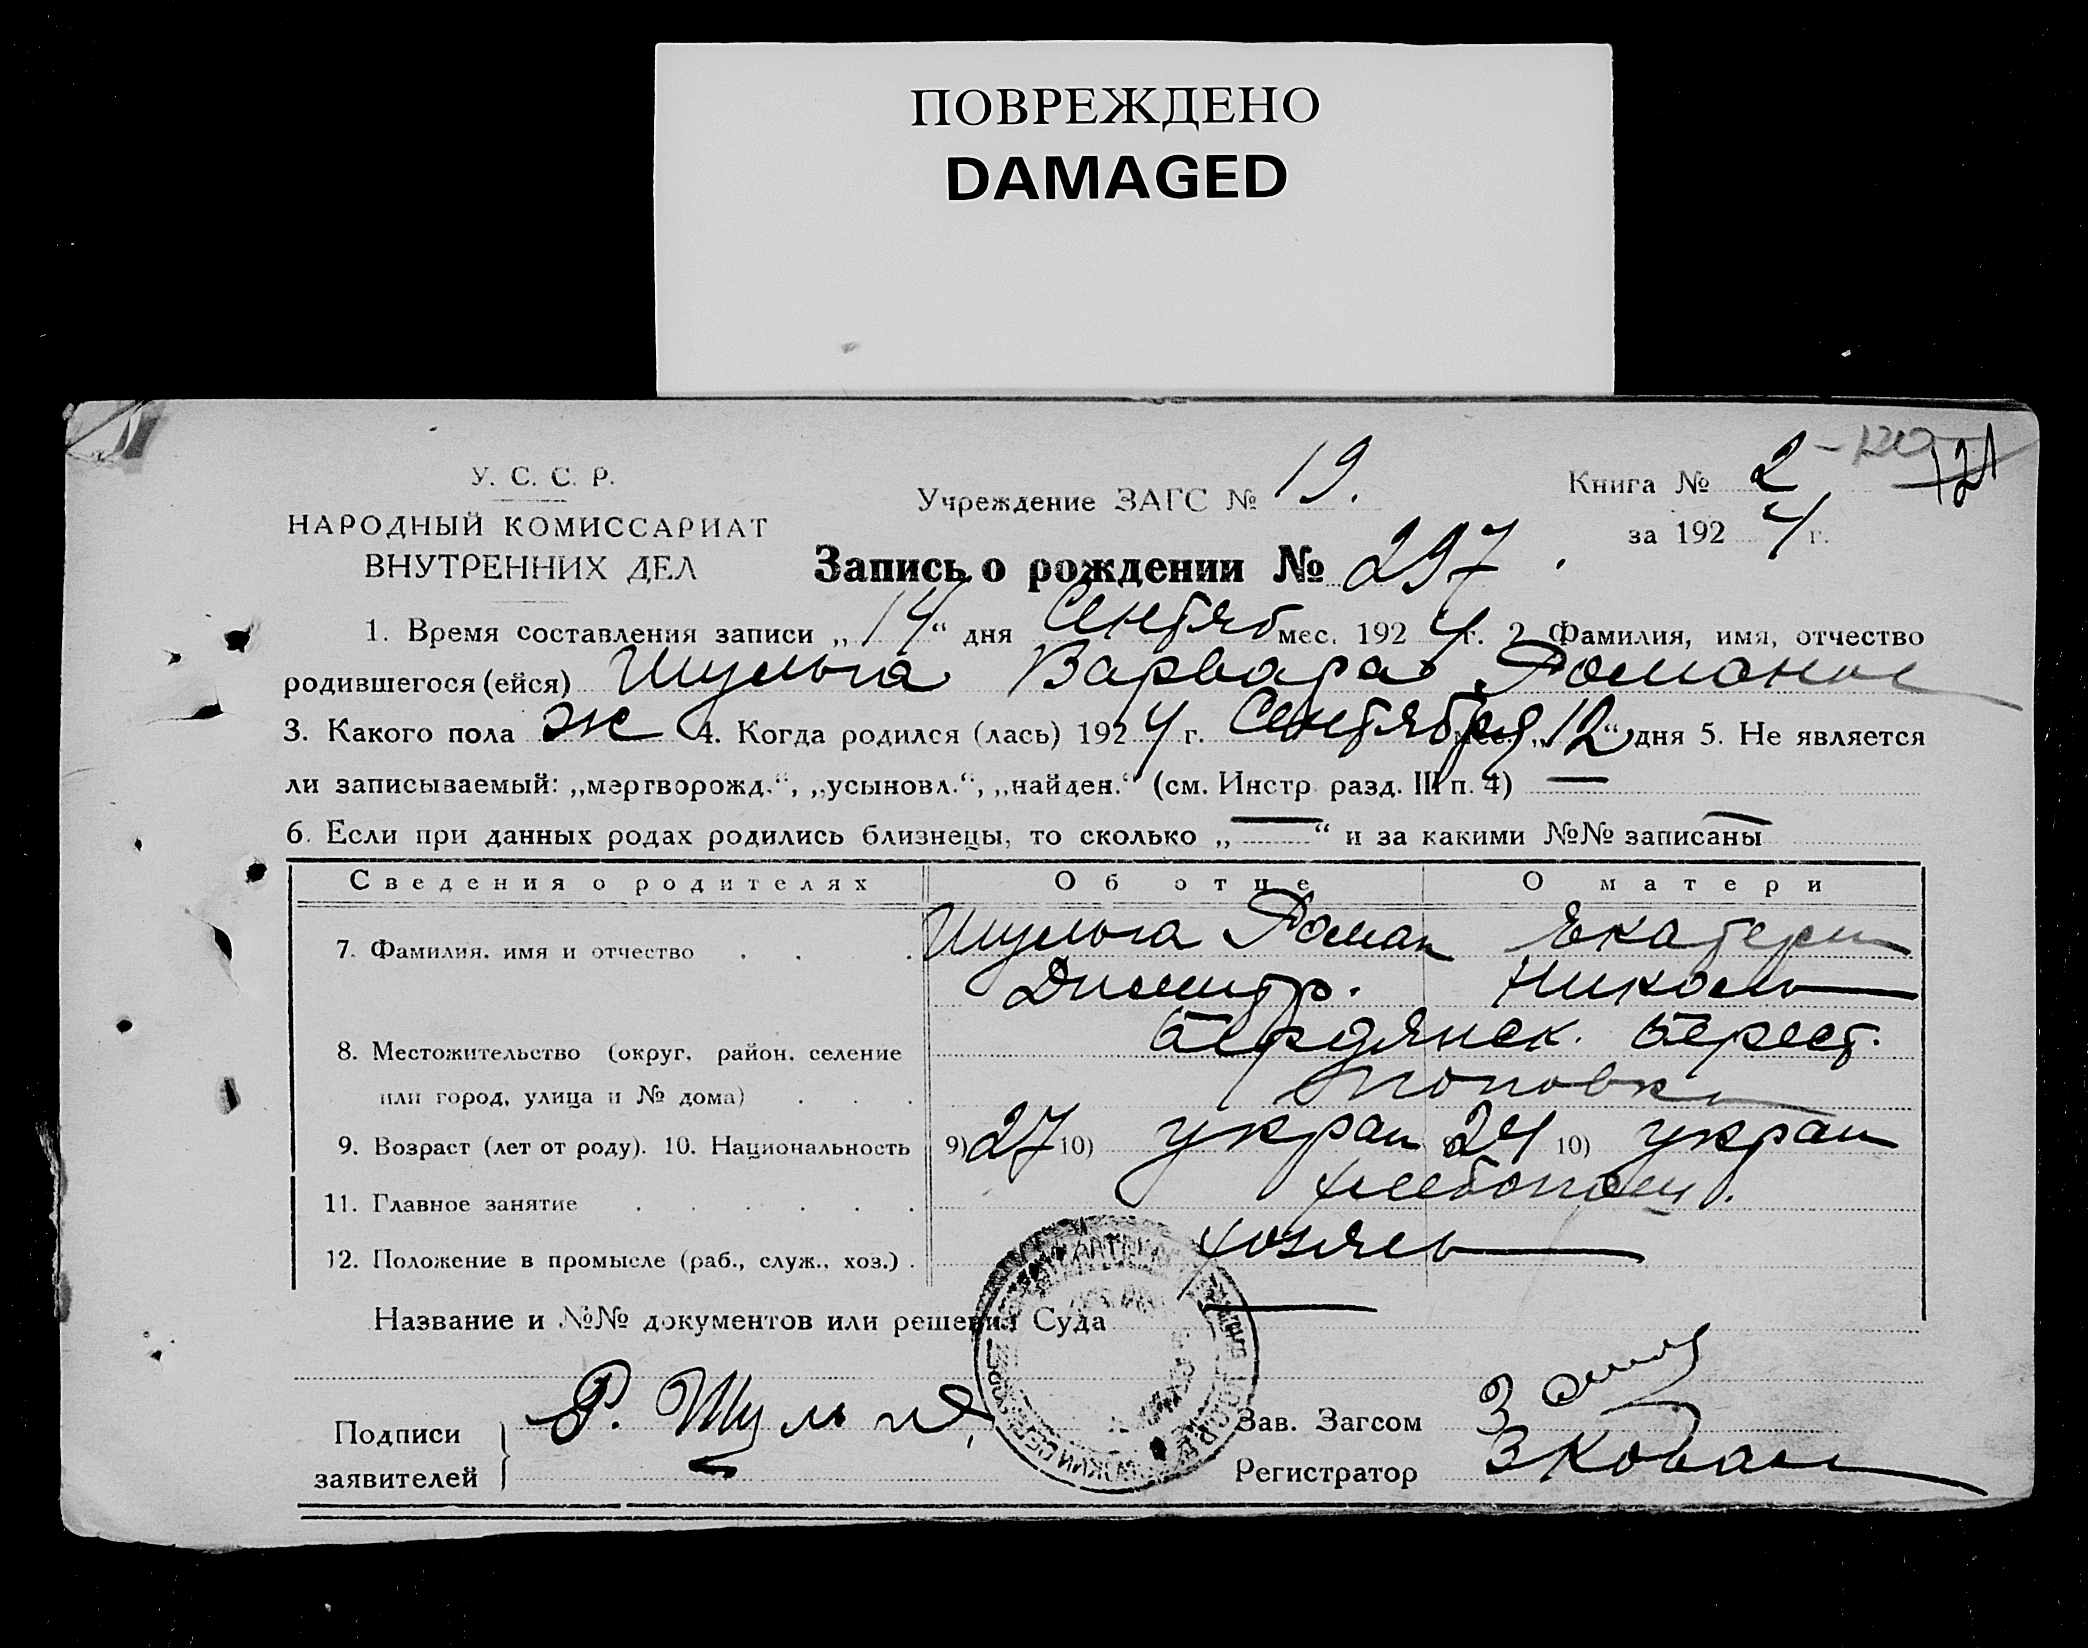 ПОВРЕЖДЕНО
DAMAGED
У. С. С. Р.
НАРОДНЫЙ КОМИССАРИАТ
ВНУТРЕННИХ ДЕЛ
Учреждение ЗАГС № 19.
Книга № 2 - 120 121
за 1924 г.
Запись о рождении № 297.
1. Время составления записи „14“ дня Сентяб мес. 1924 г. 2. Фамилия, имя, отчество
родившегося (ейся) Шульга Варвара Романов
3. Какого пола ж 4. Когда родился (лась) 1924 г. Сентября мес. „12“ дня 5. Не является
ли записываемый: „мертворожд.“, „усыновл.“, „найден.“ (см. Инстр. разд. III п. 4) —
6. Если при данных родах родились близнецы, то сколько „—“ и за какими №№ записаны —
Сведения о родителях Об отце О матери
7. Фамилия, имя и отчество . . . Шульга Роман Екатерин
Димитр. Никол
8. Местожительство (округ, район, селение Бердянск. Берест.
или город, улица и № дома) . . . Поповка
9. Возраст (лет от роду). 10. Национальность 9) 27 10) украин 24 10) украин
11. Главное занятие . . . . . . хлебопаш.
12. Положение в промысле (раб., служ., хоз.) . хозяев
Название и №№ документов или решения Суда —
Подписи
заявителей
Р. Шульга
Зав. Загсом
Регистратор